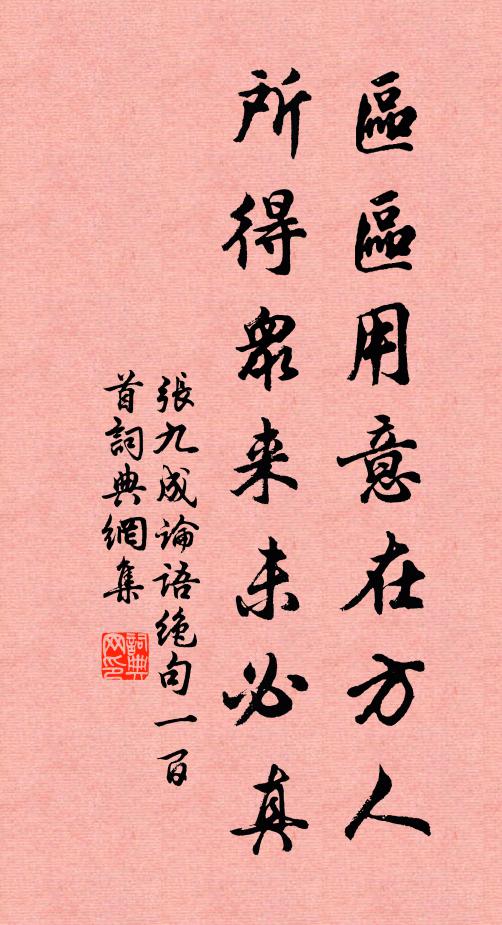 區區用意在方人
所得眾来未必真
張九成論語絶句一百
首詞典網集
詞典
网印